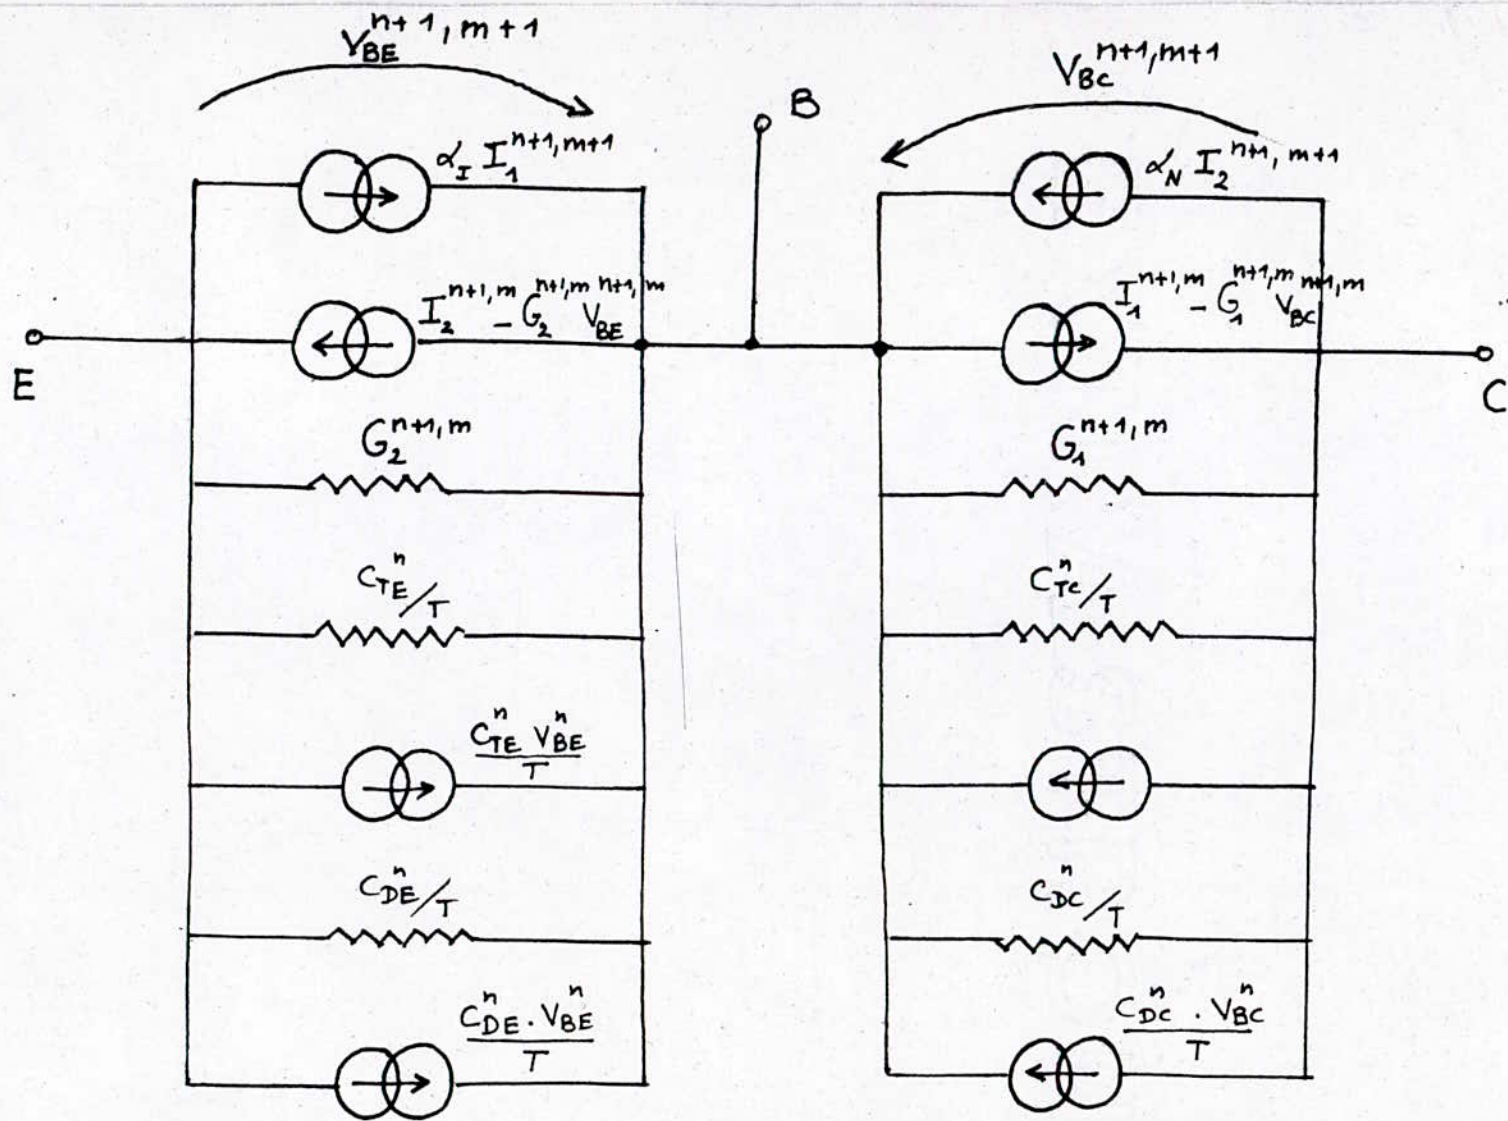 V_BE^n+1,m+1
V_BC^n+1,m+1
B
α_I I_1^n+1,m+1
α_N I_2^n+1,m+1
I_2^n+1,m - G_2^n+1,m V_BE^n+1,m
I_1^n+1,m - G_1^n+1,m V_BC^n+1,m
E
C
G_2^n+1,m
G_1^n+1,m
C_TE^n/T
C_TC^n/T
C_TE^n V_BE^n
T
C_DE^n/T
C_DC^n/T
C_DE^n . V_BE^n
T
C_DC^n . V_BC^n
T